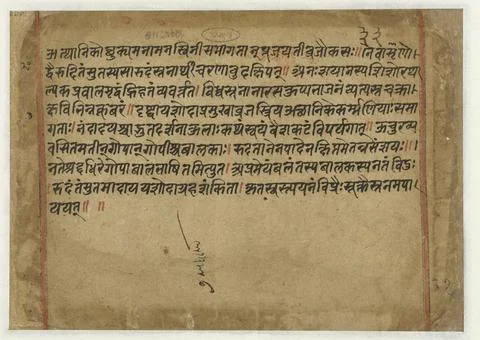 ३३
औत्थानिकौत्सुक्यमनामनस्विनी समागतान्पूजयतीव्रजौकसः॥ नैवाशृणो
द्वैरुदितंसुतस्यसारुदंस्तनार्थीचरणावुदक्षिपत्॥ अधःशयानस्यशिशोरनो
ल्पकप्रवालमृद्वंघ्रिहतंव्यवर्तत। विध्वस्तनानारसकुप्यभाजनंव्यत्यस्तचक्रा
क्षविभिन्नकूबरं॥ दृष्ट्वायशोदाप्रमुखाव्रजस्त्रिय औत्थानिकेकर्मणियाः समा
गताः। नंदादयश्चाद्भुतदर्शनाकुलाः कथंस्वयंवैशकटंविपर्यगात्॥ ऊचुरव्य
वसितमतीन्गोपान्गोपीश्चबालकाः। रुदतानेनपादेनक्षिप्तमेतन्नसंशयः॥
नतेश्रद्दधिरेगोपाबालभाषितमित्युत॥ अप्रमेयंबलंतस्यबालकस्यनतेविदुः
रुदंतंसुतमादाययशोदाग्रहशंकिता॥ कृतस्वस्त्ययनंविप्रैः सूक्तैःस्तनमपा
ययत्॥ ॥